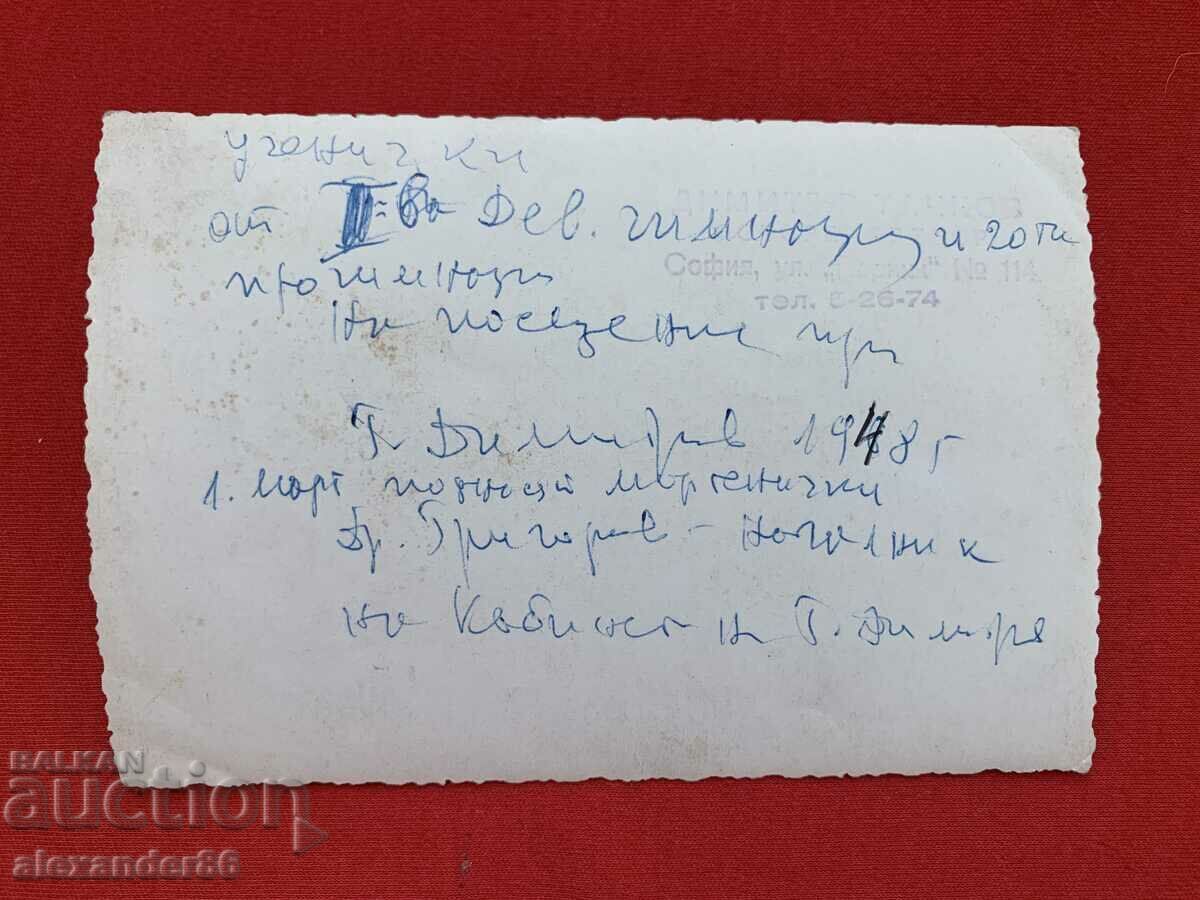 ученички
от II ва Дев. гимназия и 20 та
прогимназия
София, ул. № 114
тел. 8-26-74
На посещение при
Г. Димитров 1948 г
1. март поднасят мартенички
Др. Григоров - началник
на Кабинет на Г. Димитров
BALKAN
auction
alexander86